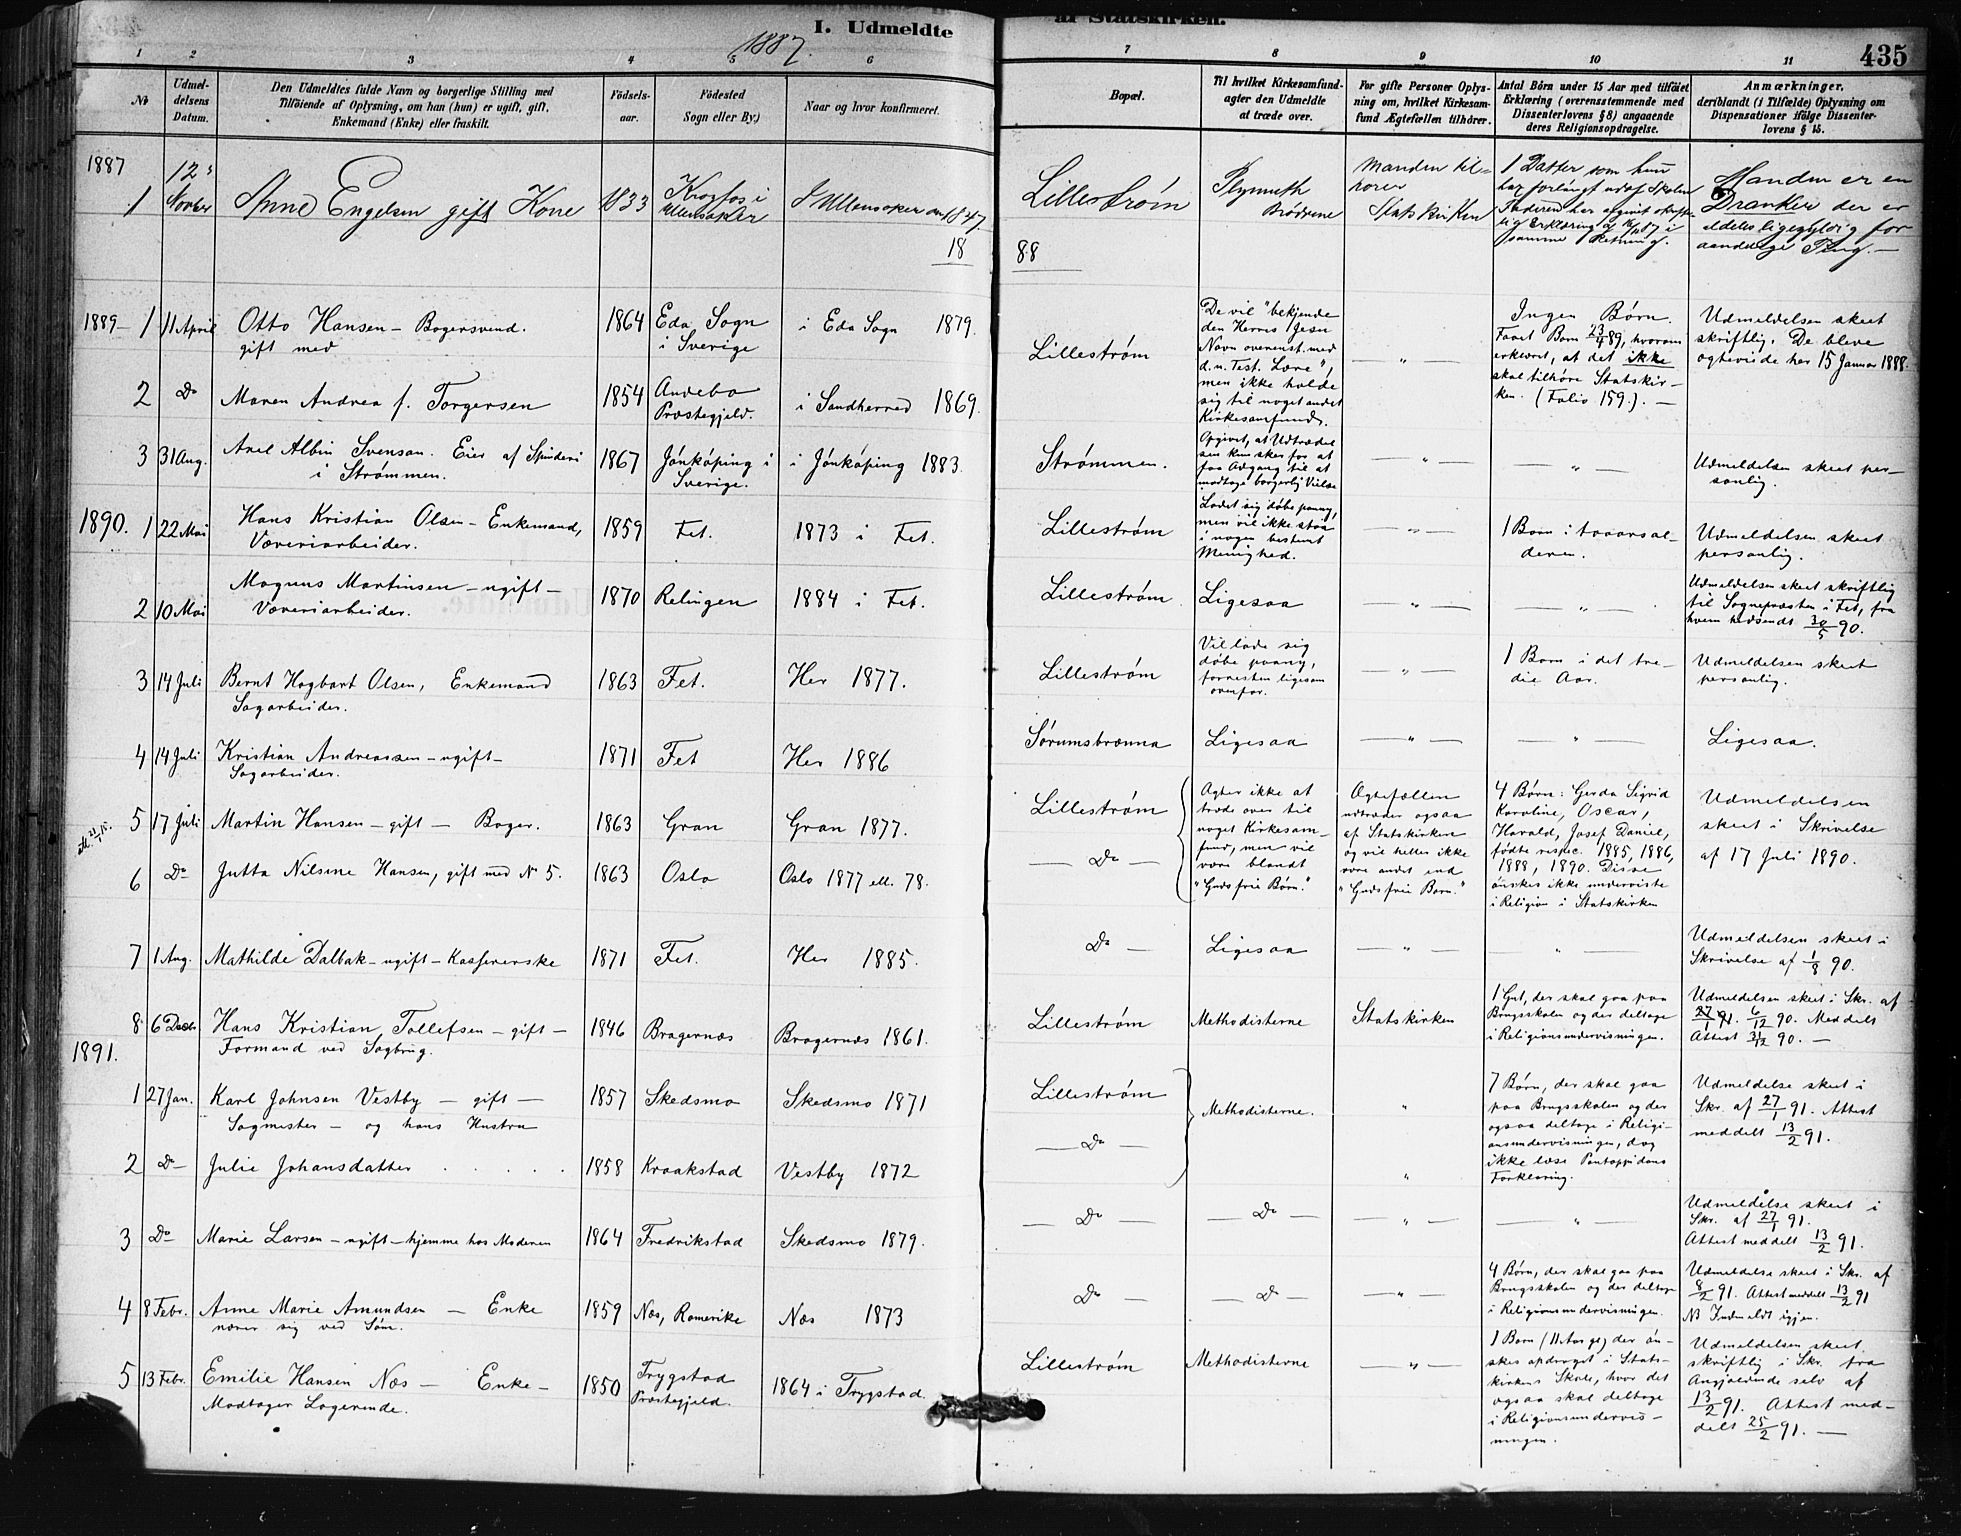 I. Udmeldte
af Statskirken.
1887.
435
1 2 3 4 5 6 7 8 9 10 11
No
Udmeldelsens Datum.
Den Udmeldtes fulde Navn og borgerlige Stilling med
Tilføiende af Oplysning, om han (hun) er ugift, gift,
Enkemand (Enke) eller fraskilt.
Fødselsaar.
Fødested
Sogn eller By.)
Naar og hvor konfirmeret.
Bopæl.
Til hvilket Kirkesamfund agter den Udmeldte at træde over.
For gifte Personer Oplysning om, hvilket Kirkesamfund Ægtefællen tilhører.
Antal Börn under 15 Aar med tilføiet Erklæring (overensstemmende med Dissenterlovens § 8) angaaende deres Religionsopdragelse.
Anmærkninger, deriblandt (i Tilfælde) Oplysning om Dispensationer ifölge Dissenterlovens § 15.
1887
1 12 Novber Anne Engelsen gift Kone 1833 Krogfos i Ullensaker I Ullensaker 1847.
Lillestrøm Plymouth Brødrene Manden tilhører Statskirken
1 Datter som hun har forlangt ud af Skolen Faderen har afgivet skriftlig Erklæring i samme Retning.
Manden er en Dranker der er aldeles ligegyldig for aandelige Ting.—
18 88
1889— 1 11 April Otto Hansen — Bagersvend. gift med 1864 Eda Sogn i Sverige i Eda Sogn 1879.
Lillestrøm
De vil "bekjende den Herres Jesu Navn overenst. med d. n. Test. Lære", men ikke holde sig til noget andet Kirkesamfund.
— " —
Ingen Børn.
Faaet Barn 23/4 89, hvorom erklæret, at det ikke skal tilhöre Statskirken. (Folio 159.). —
Udmeldelsen skeet skriftlig. De bleve ægteviede her 15 Januar 1888.
2 Do Maren Andrea f. Torgersen 1854 Andebo Præstegjeld. i Sandherred 1869.
3 31 Aug. Axel Albin Svenson. Eier af Spinderi i Strømmen. 1867 Jönköping i Sverige. i Jönköping 1883.
Strømmen.
Opgivet, at Udtrædelsen kun sker for at faa Adgang til at modtage borgerlig Vielse
— " — — " —
Udmeldelsen skeet personlig.
1890. 1 22 Mai Hans Kristian Olsen — Enkemand, Væveriarbeider. 1859 Fet. 1873 i Fet.
Lillestrøm
Ladet sig døbe paany, men vil ikke staa i nogen bestemt Menighed.
— " —
1 Barn i toaarsalderen.
Udmeldelsen skeet personlig.
2 10 Mai Magnus Martinsen — ugift — Væveriarbeider. 1870 Relingen 1884 i Fet.
Lillestrøm Ligesaa — " — — " —
Udmeldelsen skeet skriftlig til Sognepræsten i Fet, fra hvem hidsendt 30/5 90.
3 14 Juli Bernt Hagbart Olsen, Enkemand Sagarbeider. 1863 Fet. Her 1877.
Lillestrøm
Vil lade sig døbe paany, forresten ligesom ovenfor.
— " —
1 Barn i det tredie Aar.
Udmeldelsen skeet personlig.
4 14 Juli Kristian Andreassen — ugift — Sagarbeider. 1871 Fet Her 1886
Sørumsbrænna Ligesaa — " — — " — Ligesaa.
5 17 Juli Martin Hansen — gift — Bager. 1863 Gran Gran 1877.
Lillestrøm
Agter ikke at træde over til noget Kirkesamfund, men vil være blandt "Guds frie Børn."
Ægtefællen udtræder ogsaa af Statskirken og vil heller ikke være andet end "Guds frie Barn."
4 Børn: Gerda Sigrid Karoline, Oscar, Harald, Josef Daniel, fødte respec. 1885, 1886, 1888, 1890. Disse önskes ikke underviste i Religion i Statskirken
Udmeldelsen skeet i Skrivelse af 17 Juli 1890.
6 Do Jutta Nilsine Hansen, gift med No 5. 1863 Oslo Oslo 1877 ell. 78.
— Do —
7 1 Aug. Mathilde Dalbak — ugift — Kassererske 1871 Fet. Her 1885.
Do — Ligesaa — " — — " —
Udmeldelsen skeet i Skrivelse af 1/8 90.
8 6 Decbr Hans Kristian Tollefsen — gift — Formand ved Sagbrug. 1846 Bragernæs Bragernæs 1861.
Lillestrøm Methodisterne Statskirken
1 Gut, der skal gaa paa Brugsskolen og der deltage i Religionsundervisningen.
Udmeldelsen skeet i Skr. af 27/1 91. 6/12 90. Meddelt Attest 31/12 90. —
1891.
1 27 Jan. Karl Johnsen Vestby — gift — Sagmester — og hans Hustru 1857 Skedsmo Skedsmo 1871
Lillestrøm Methodisterne. "
7 Børn, der skal gaa paa Brugsskolen og der ogsaa deltage i Religionsundervisningen, dog ikke læse Pontoppidans Forklaring.
Udmeldelse skeet i Skr. af 27/1 91. Attest meddelt 13/2 91.
2 Do Julie Johansdatter . . . . . 1858 Kraakstad Vestby 1872
— Do — "
3 Do Marie Larsen — ugift — hjemme hos Moderen 1864 Fredrikstad Skedsmo 1879.
— Do — — Do — — " — — " —
Udmeldelse skeet i Skr. af 27/1 91. Attest meddelt 13/2 91.
4 8 Febr. Anne Marie Amundsen — Enke nærer sig ved Søm. 1859 Næs, Romerike Næs 1873
Do — — Do — — " —
4 Børn, der skal gaa paa Brugsskolen og der deltage i Religionsundervisningen.
Udmeldelse skeet i Skr. af 8/2 91. Attest meddelt 13/2 91
NB Indmeldt igjen.
5 13 Febr. Emilie Hansen Næs — Enke — Modtager Logerende. 1850 Trygstad Præstegjeld. 1864 i Trygstad.
Lillestrøm Methodisterne — " —
1 Barn (11 Aar gl) der önskes opdraget i Statskirkens Skole, hvor det ogsaa skal deltage i Religionsundervisningen.
Udmeldelsen skeet skriftlig i Skr. fra Angjældende selv af 13/2 91. Attest meddelt 25/2 91. —